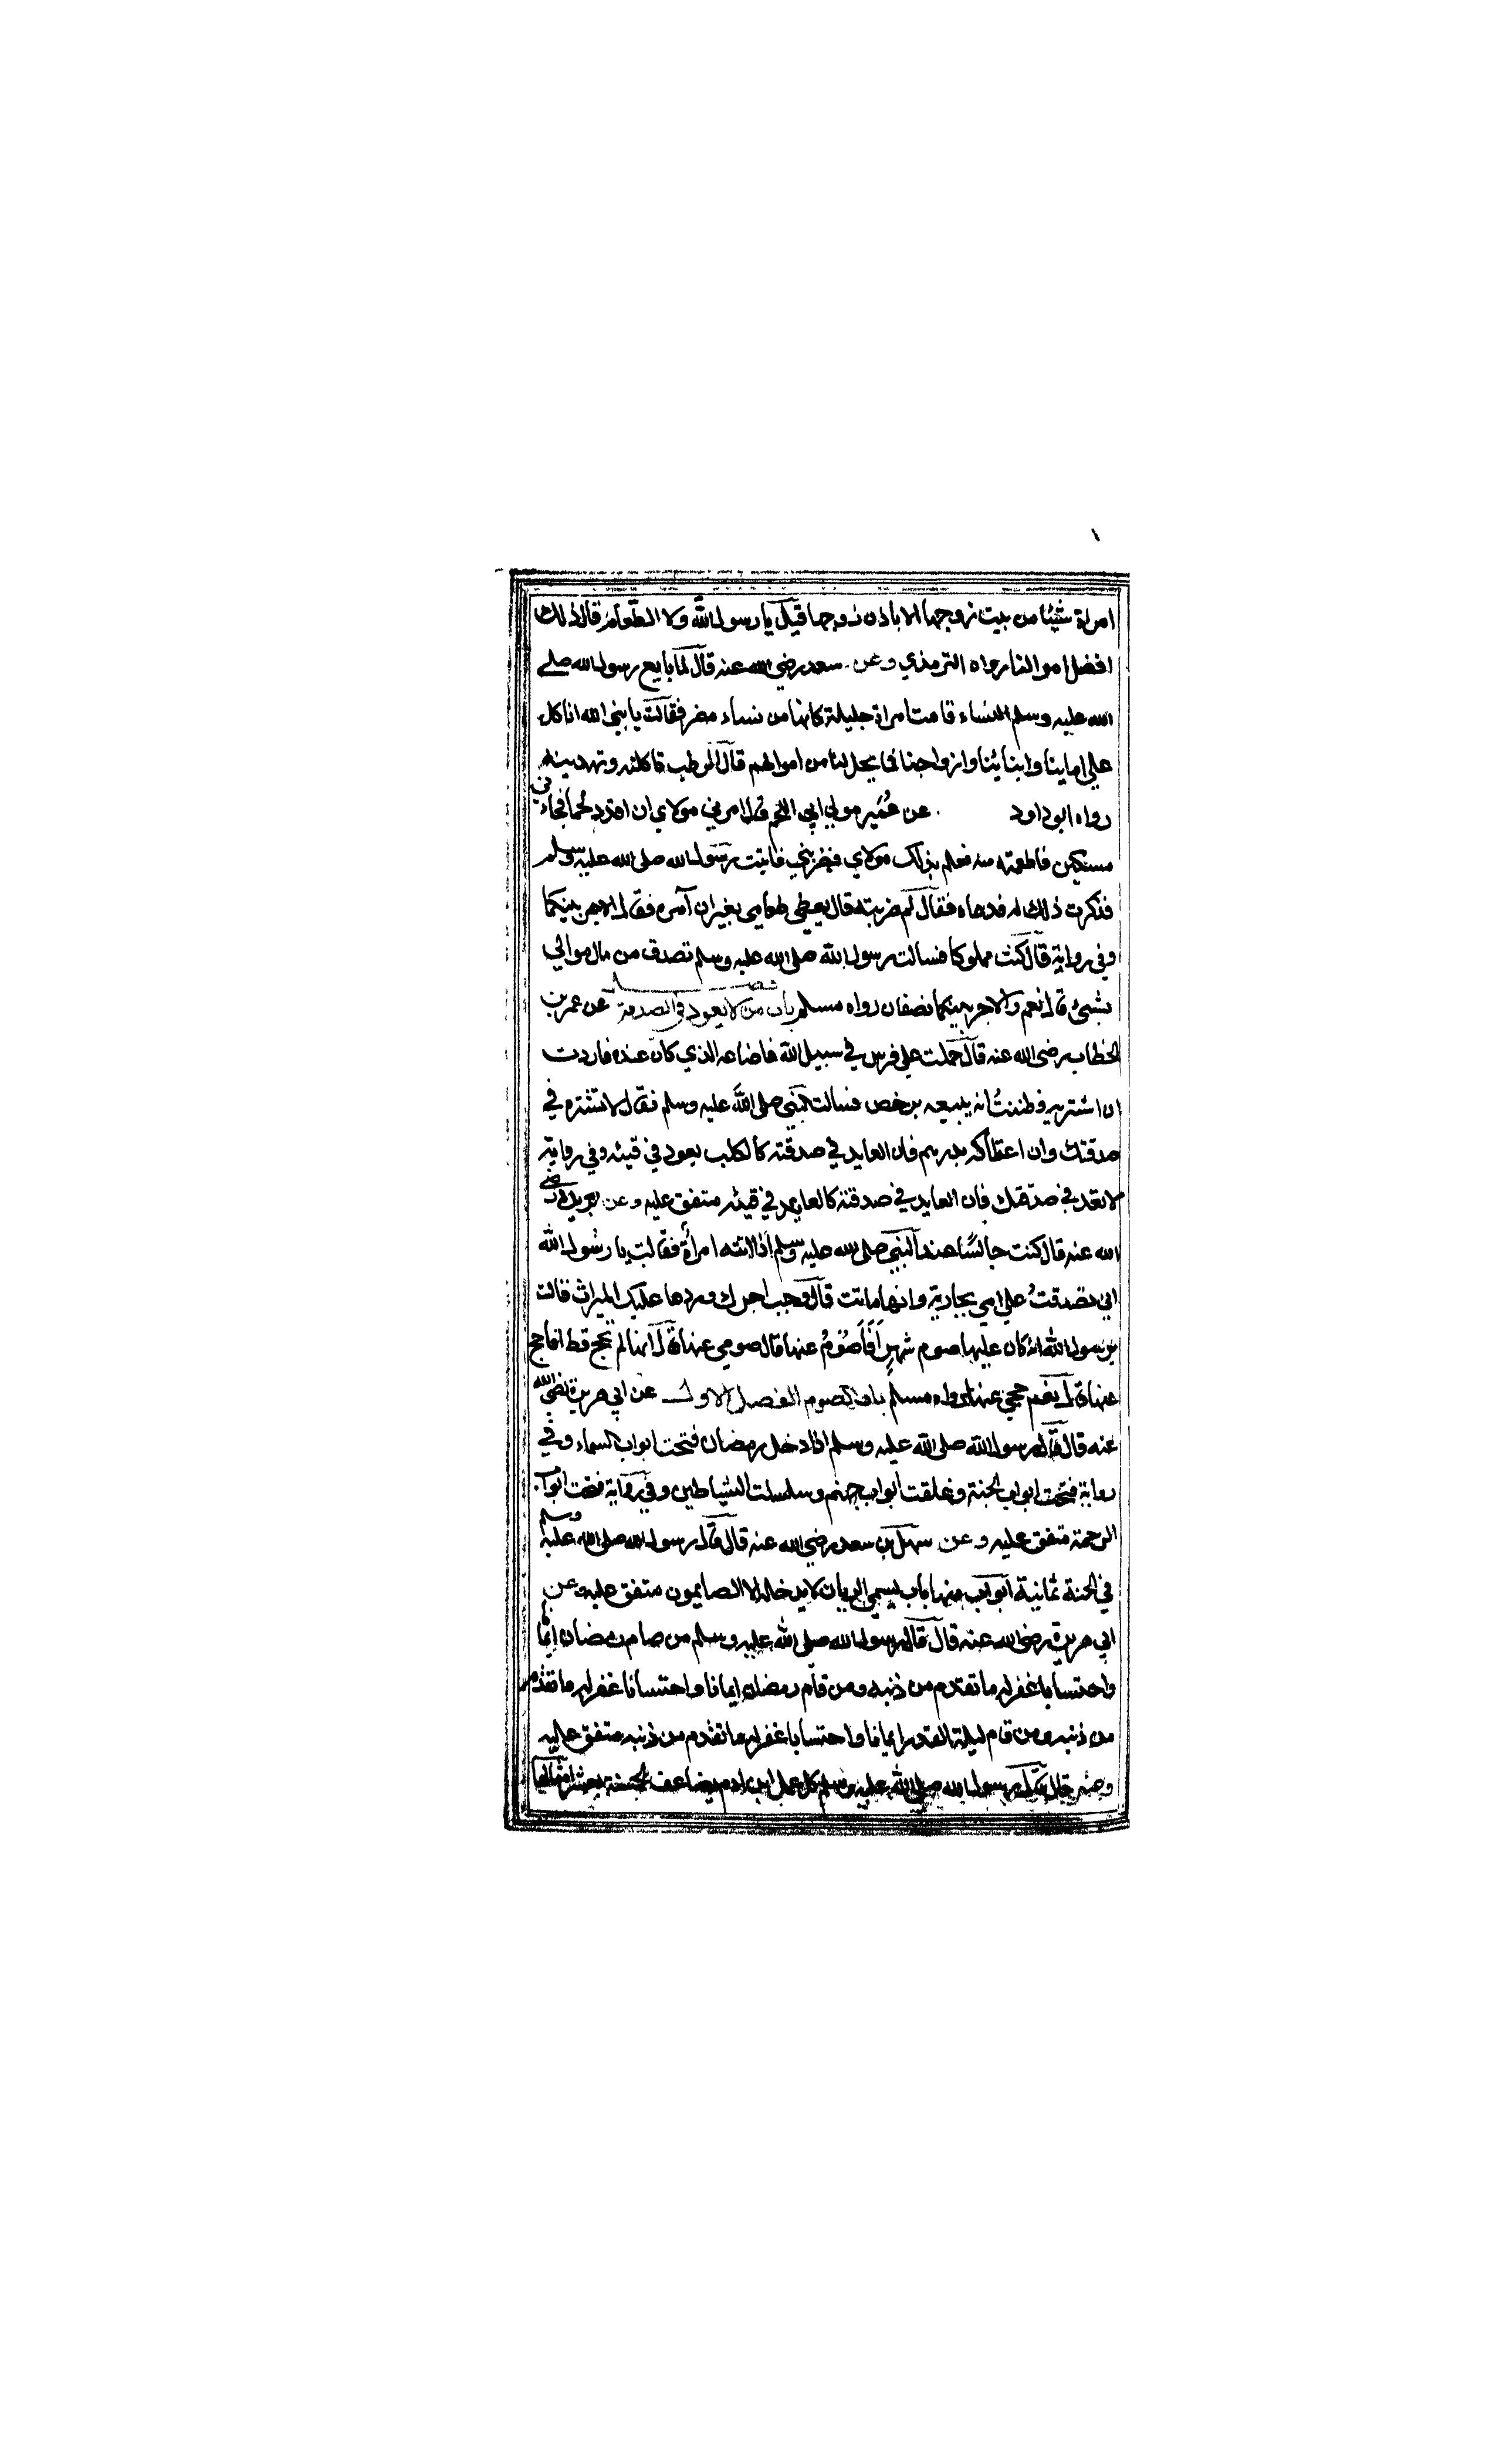 امراة شيئا من بيت زوجها الا باذن زوجها قيل يا رسول الله ولا الطعام قال ذلك
افضل اموالنا رواه الترمذي وعن سعد رضي الله عنه قال لما بايع رسول الله صلى
الله عليه وسلم النساء قامت امراة جليلة كانها من نساء مضر فقالت يا نبي الله انا كل
على ابائنا وابنائنا وازواجنا فما يحل لنا من اموالهم قال الرطب تاكلنه وتهدينه
رواه ابو داود عن عُمَير مولى ابي اللحم قال امرني مولاي ان اقدد لحما فجاءني
مسكين فاطعمته منه فعلم بذلك مولاي فضربني فاتيت رسول الله صلى الله عليه وسلم
فذكرت ذلك له فدعاه فقال لم ضربته قال يعطي طعامي بغير ان آمره فقال الاجر بينكما
وفي رواية قال كنت مملوكا فسالت رسول الله صلى الله عليه وسلم تصدق من مال موالي
بشيء قال نعم والاجر بينكما نصفان رواه مسلم باب من لا يعود في الصدقة عن عمر بن
الخطاب رضي الله عنه قال حملت على فرس في سبيل الله فاضاعه الذي كان عنده فاردت
ان اشتريه وظننتُ انه يبيعه برخص فسالت النبي صلى الله عليه وسلم فقال لا تشتره في
صدقتك وان اعطاكه بدرهم فان العايد في صدقته كالكلب يعود في قيئه وفي رواية
لا تعد في صدقتك فان العايد في صدقته كالعايد في قيئه متفق عليه وعن بريدة رضي
الله عنه قال كنت جالسًا عند النبي صلى الله عليه وسلم اذا اتته امراة فقالت يا رسول الله
اني تصدقتُ على امي بجارية وانها ماتت قال وجب اجرك وردها عليك الميراث قالت
يا رسول الله انه كان عليها صوم شهرٍ اَفَاَصُوْمُ عنها قال صومي عنها قال انها لم تحج قط افاحج
عنها قال نعم حجي عنها رواه مسلم باب الصوم الفصل الاول عن ابي هريرة رضي الله
عنه قال قال رسول الله صلى الله عليه وسلم اذا دخل رمضان فتحت ابواب السماء وفي
رواية فتحت ابواب الجنة وغلقت ابواب جهنم وسلسلت الشياطين وفي رواية فتحت ابواب
الرحمة متفق عليه وعن سهل بن سعد رضي الله عنه قال قال رسول الله صلى الله عليه وسلم
في الجنة ثمانية ابواب منها باب يسمى الريان لا يدخله الا الصايمون متفق عليه وعن
ابي هريرة رضي الله عنه قال قال رسول الله صلى الله عليه وسلم من صام رمضان ايمانا
واحتسابا غفر له ما تقدم من ذنبه ومن قام رمضان ايمانا واحتسابا غفر له ما تقدم
من ذنبه ومن قام ليلة القدر ايمانا واحتسابا غفر له ما تقدم من ذنبه متفق عليه
وعنه قال قال رسول الله صلى الله عليه وسلم كل عمل ابن ادم يضاعف الحسنة بعشر امثالها